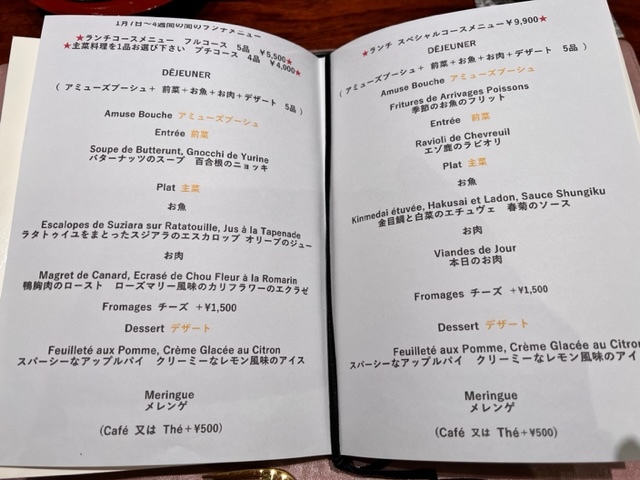 1月7日～4週間の間のランチメニュー
★ランチコースメニュー フルコース 5品 ￥5,500★
★主菜料理を1品お選び下さい プチコース 4品 ￥4,000★
DÉJEUNER
( アミューズブーシュ＋ 前菜＋お魚＋お肉＋デザート 5品 )
Amuse Bouche アミューズブーシュ
Entrée 前菜
Soupe de Butterunt, Gnocchi de Yurine
バターナッツのスープ 百合根のニョッキ
Plat 主菜
お魚
Escalopes de Suziara sur Ratatouille, Jus à la Tapenade
ラタトゥイユをまとったスジアラのエスカロップ オリーブのジュー
お肉
Magret de Canard, Ecrasé de Chou Fleur à la Romarin
鴨胸肉のロースト ローズマリー風味のカリフラワーのエクラゼ
Fromages チーズ ＋¥1,500
Dessert デザート
Feuilleté aux Pomme, Crème Glacée au Citron
スパーシーなアップルパイ クリーミーなレモン風味のアイス
Meringue
メレンゲ
(Café 又は Thé＋¥500)
★ランチ スペシャルコースメニュー￥9,900★
DÉJEUNER
( アミューズブーシュ＋ 前菜＋お魚＋お肉＋デザート 5品 )
Amuse Bouche アミューズブーシュ
Fritures de Arrivages Poissons
季節のお魚のフリット
Entrée 前菜
Ravioli de Chevreuil
エゾ鹿のラビオリ
Plat 主菜
お魚
Kinmedai étuvée, Hakusai et Ladon, Sauce Shungiku
金目鯛と白菜のエチュヴェ 春菊のソース
お肉
Viandes de Jour
本日のお肉
Fromages チーズ ＋¥1,500
Dessert デザート
Feuilleté aux Pomme, Crème Glacée au Citron
スパーシーなアップルパイ クリーミーなレモン風味のアイ
Meringue
メレンゲ
(Café 又は Thé＋¥500)